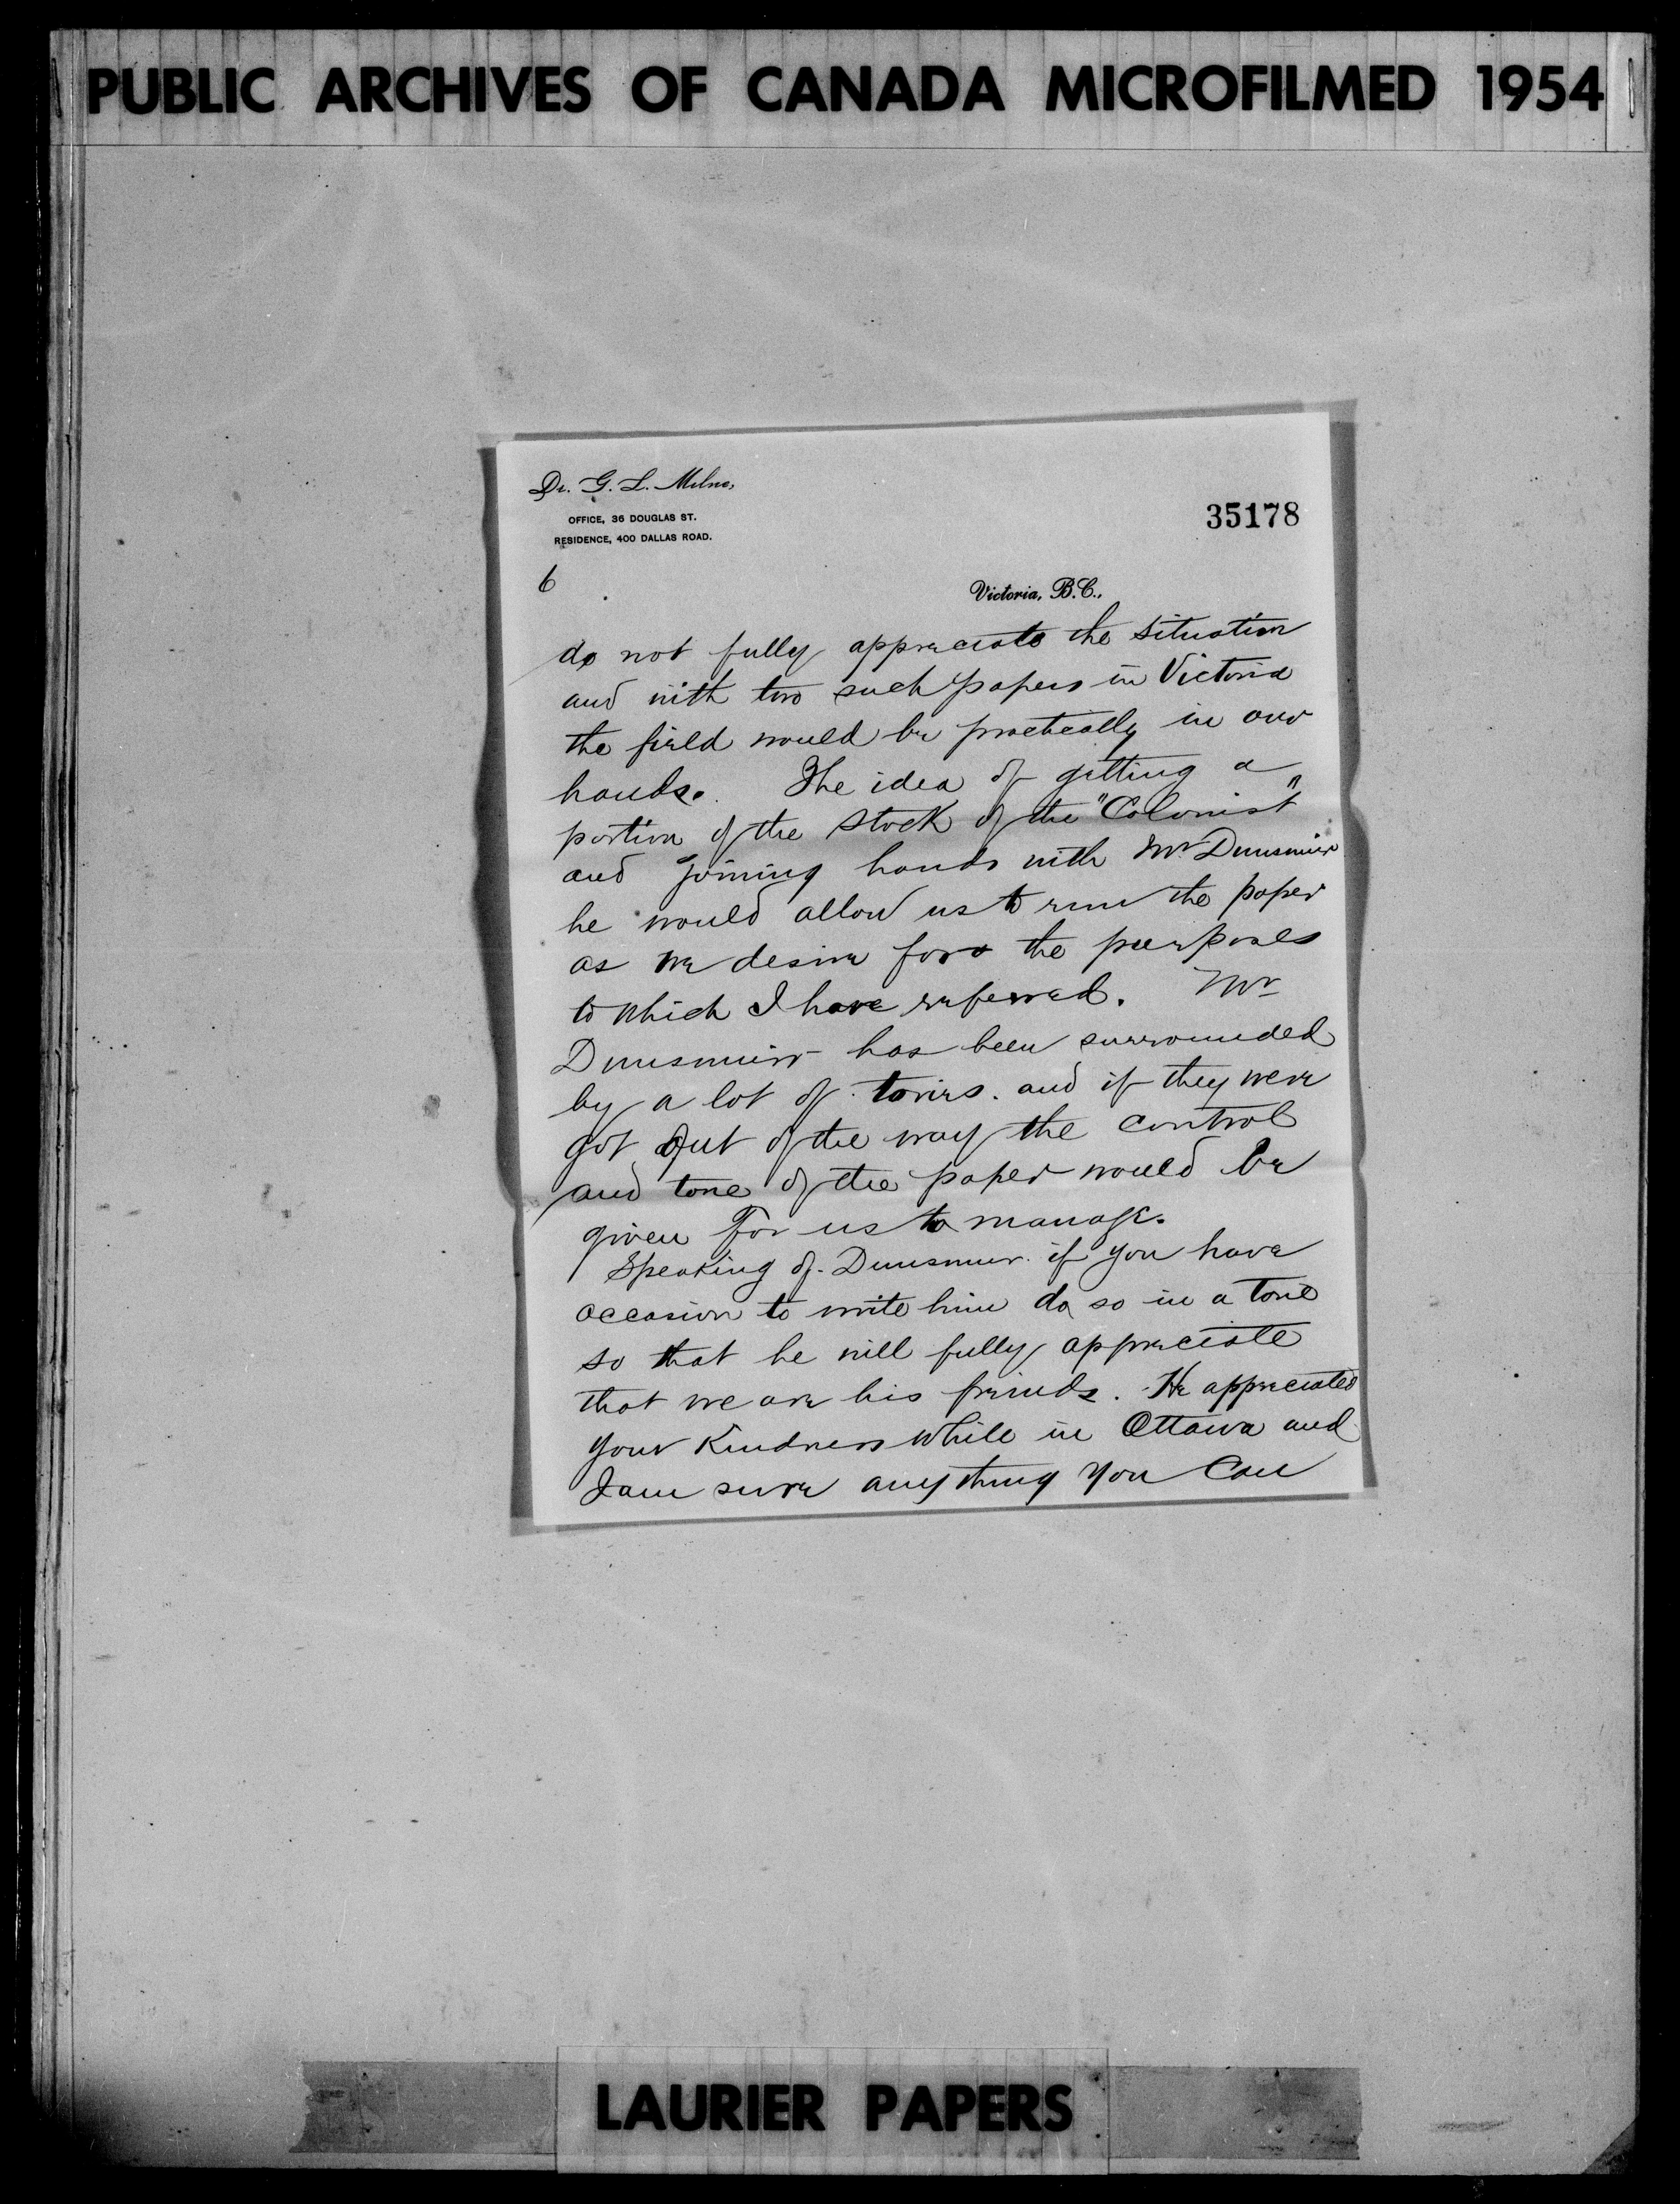 PUBLIC ARCHIVES OF CANADA MICROFILMED 1954
Dr. G. L. Milne,
OFFICE, 36 DOUGLAS ST.
RESIDENCE, 400 DALLAS ROAD.
35178
6
Victoria, B.C.,
do not fully appreciate the situation
and with two such papers in Victoria
the field would be practically in our
hands. The idea of getting a
portion of the stock of the "Colonist"
and joining hands with Mr Dunsmuir
he would allow us to run the paper
as we desire for the purposes
to which I have referred. Mr
Dunsmuir has been surrounded
by a lot of tories. and if they were
got out of the way the control
and tone of the paper would be
given for us to manage.
Speaking of Dunsmuir. if you have
occasion to write him do so in a tone
so that he will fully appreciate
that we are his friends. He appreciated
your kindness while in Ottawa and
I am sure anything you can
LAURIER PAPERS